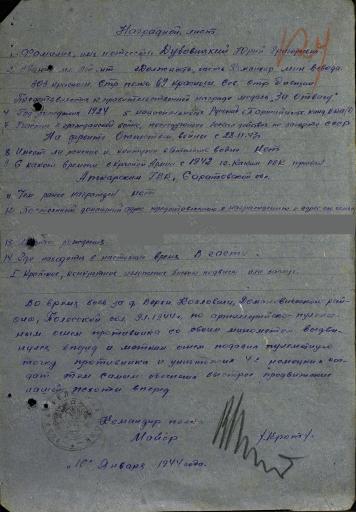 Наградной лист
1. Фамилия, имя и отчество Дубовицкий Юрий Григорьевич
2. Звание мл. л-нт Должность, часть Командир мин. взвода
609 краснозн. Стр. полка 69 красноз. Сев. стр. дивизии
Представляется к правительственной награде медаль "За отвагу"
4. Год рождения 1924 5. национальность Русский 6. Партийность
7. Участие в гражданской войне, последующих боевых действиях по защите СССР
На фронте Отечественной войны с 22.11.43г.
8. Имеет ли ранения и контузии в Отечеств. войне Нет
9. С какого времени в Красной Армии с 1942 10. Каким РВК призван
Аткарским РВК, Саратовской обл.
11. Чем ранее награжден нет
12. Постоянный домашний адрес представляемого к награждению и адрес его семьи
13. Место рождения
14. Где находится в настоящее время В части.
I Краткое, конкретное изложение боевого подвига или заслуг.
Во время боев за д. Верхн. Козловичи, Домановичский рай-
он, Полесской обл. 9.1.1944г. по артиллерийско-пулемет-
ным огнем противника со своим минометом выдви-
нулся вперед и метким огнем подавил пулеметную
точку противника и уничтожил 4х немецких сол-
дат этим самым обеспечил быстрое продвижение
нашей пехоты вперед
Командир полка
Майор /Крот/
"10" Января 1944 года.